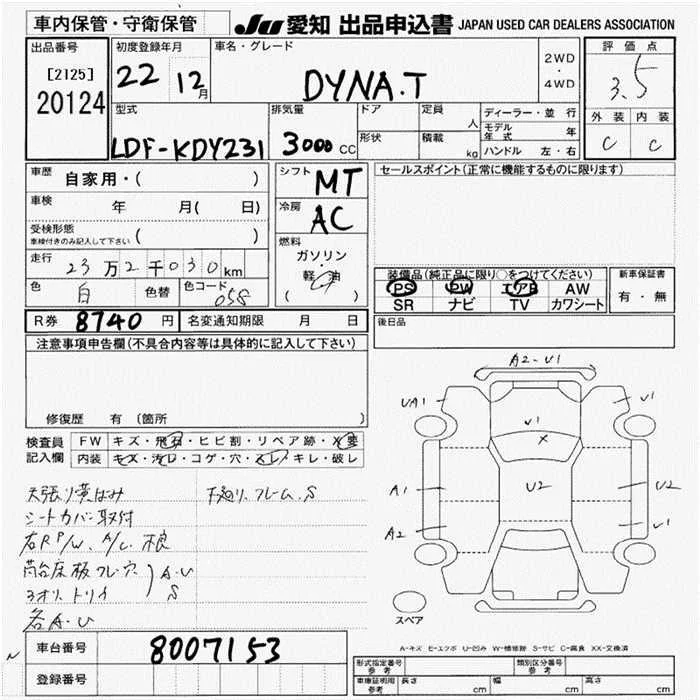 車内保管・守衛保管
JU 愛知 出品申込書 JAPAN USED CAR DEALERS ASSOCIATION
出品番号
[2125]
20124
初度登録年月
22 12月
車名・グレード
DYNA.T
2WD
・
4WD
評価点
3.5
外装 内装
C C
型式
LDF-KDY231
排気量
3000 CC
ドア
形状
定員
人
積載
kg
ディーラー・並行
モデル年式 年
ハンドル 左・右
車歴 自家用・( )
車検 年 月( 日)
受検形態
車検付きのみ記入して下さい ( )
走行 23万2千030km
色 白 色替 色コード 058
シフト MT
冷房 AC
燃料
ガソリン
・
軽油
( )
セールスポイント(正常に機能するものに限ります)
装備品(純正品に限り○をつけてください)
PS PW エアB AW
SR ナビ TV カワシート
新車保証書
有・無
後日品
R券 8740 円 名変通知期限 月 日
注意事項申告欄(不具合内容等は具体的に記入して下さい)
修復歴 有 (箇所 )
検査員記入欄
FW キズ・飛石・ヒビ割・リペア跡・X要
内装 キズ・汚れ・コゲ・穴・スレ・キレ・破レ
天張り黄ばみ 下廻り.フレーム.S
シートカバー取付
右RP/W、A/C.根
荷台床板フレ.穴 A.U
3オリ.トリイ S
各A.U
A2-U1
UA1
U1
U1
X
A1
U2
U2
A2
U1
スペア
車台番号 8007153
登録番号
A-キズ E-エクボ U-凹み W-補修跡 S-サビ C-腐食 XX-交換済
形式指定番号 参考
類別区分番号 参考
車庫証明用 参考 長さ cm 幅 cm 高さ cm